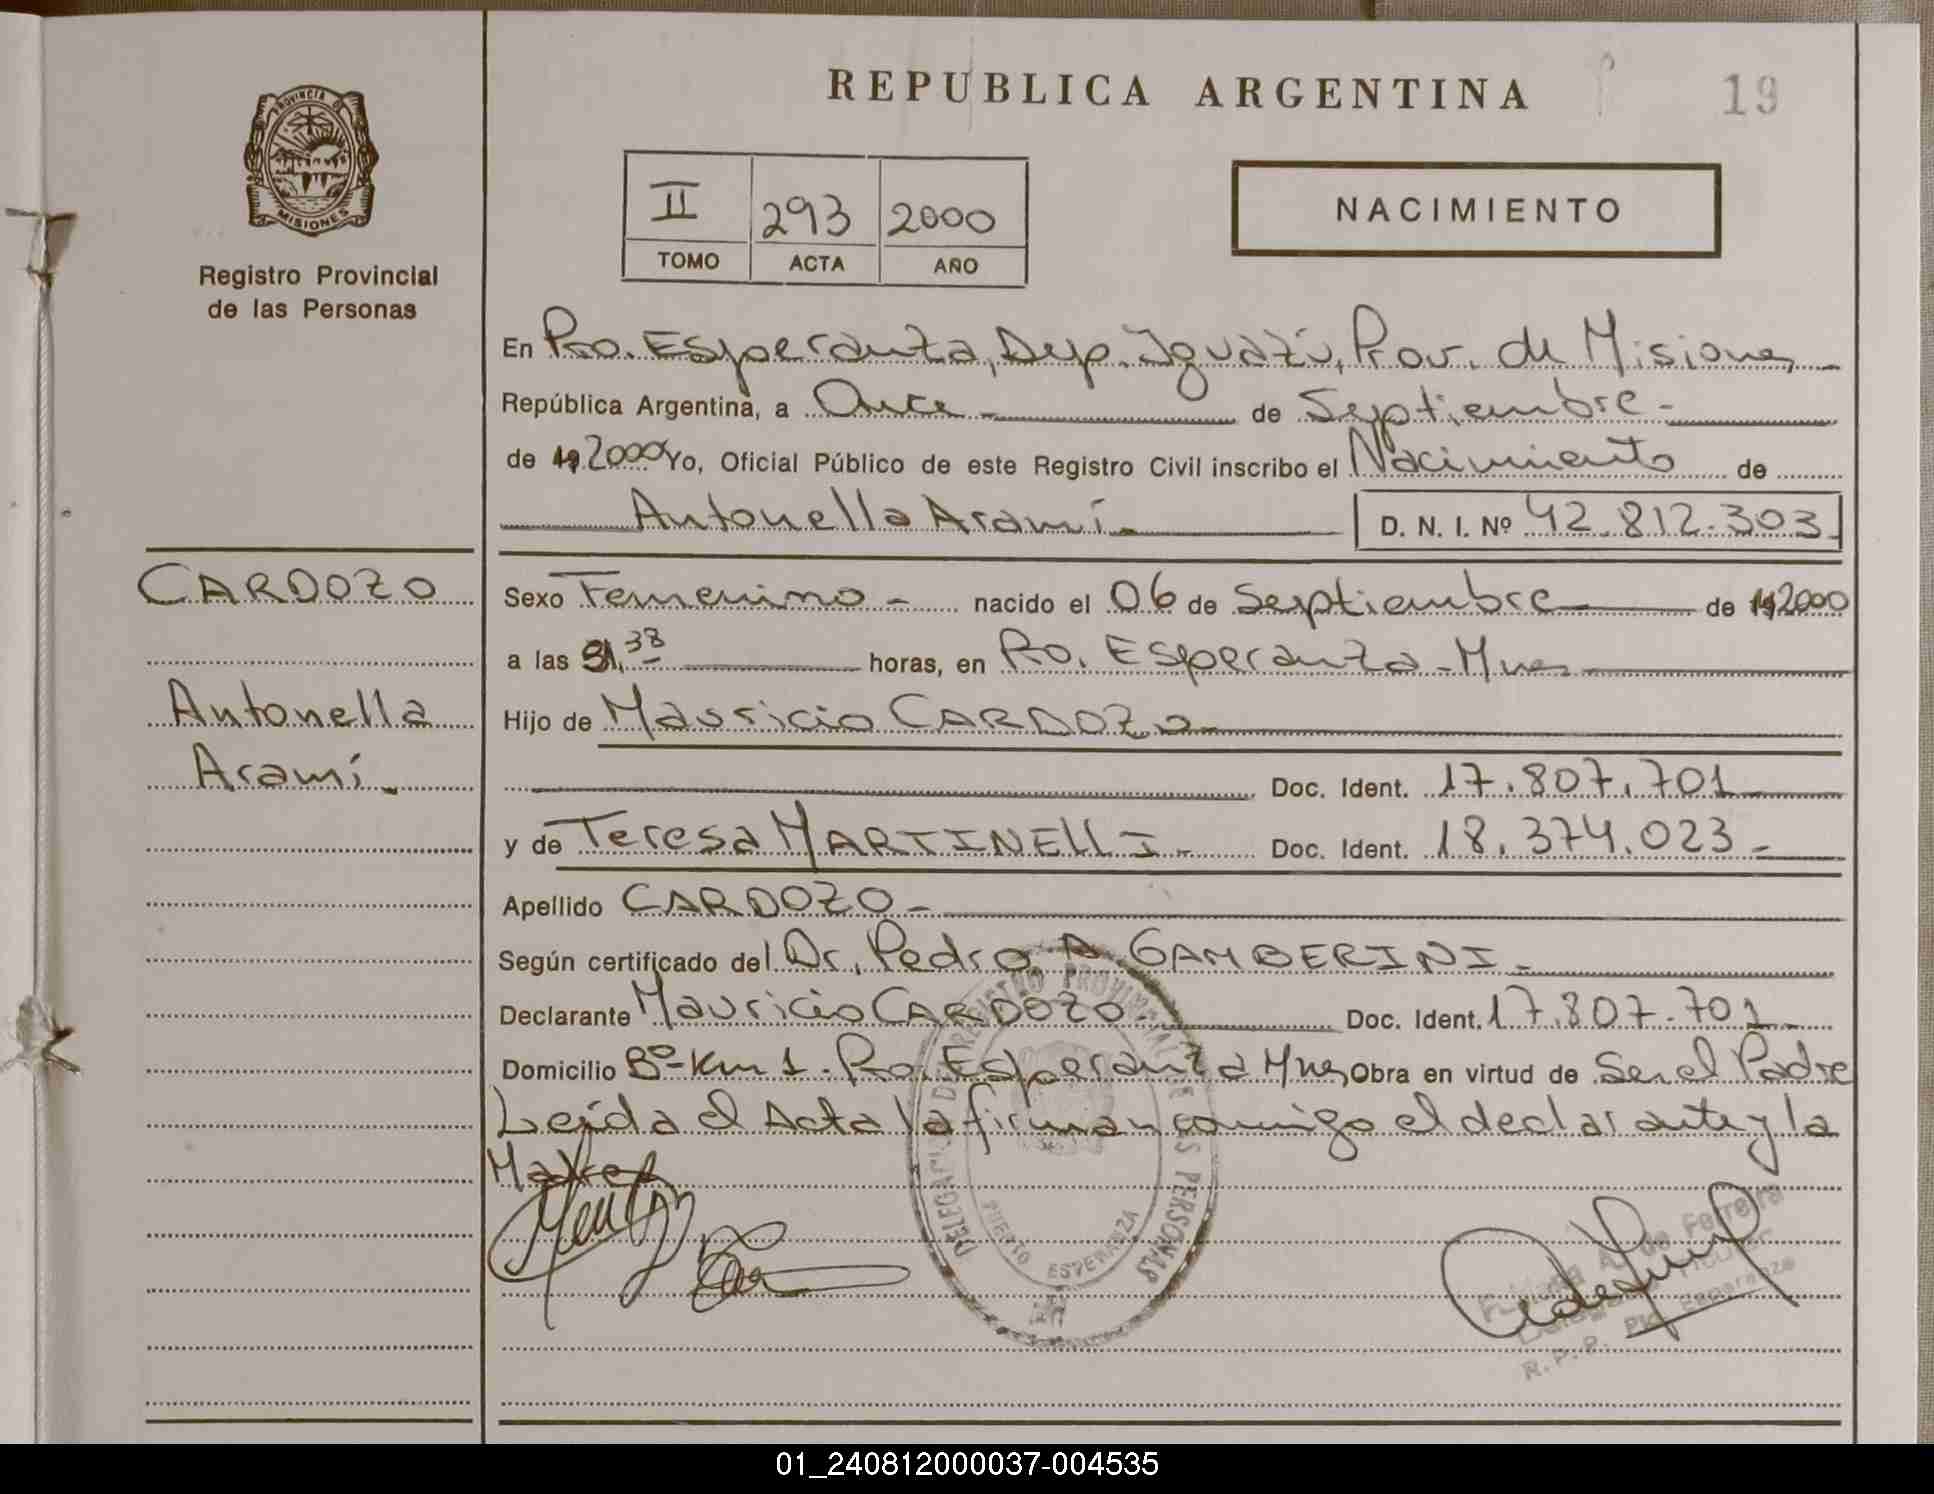 REPUBLICA ARGENTINA
19
PROVINCIA DE
MISIONES
Registro Provincial
de las Personas
II 293 2000
TOMO ACTA AÑO
NACIMIENTO
En Pto. Esperanza, Dep. Iguazú, Prov. de Misiones
República Argentina, a Once - de Septiembre -
de 19 2000 Yo, Oficial Público de este Registro Civil inscribo el Nacimiento de
Antonella Aramí - D. N. I. Nº 42.812.303
CARDOZO
Antonella
Aramí -
Sexo Femenino - nacido el 06 de Septiembre de 19 2000
a las 38 horas, en Pto. Esperanza - Mnes
Hijo de Mauricio CARDOZO
Doc. Ident. 17.807.701
y de Teresa MARTINELLI - Doc. Ident. 18.374.023 -
Apellido CARDOZO -
Según certificado del Dr. Pedro A. GAMBERINI -
Declarante Mauricio CARDOZO Doc. Ident. 17.807.701 -
Domicilio Bº Km 1 - Pto. Esperanza Mnes Obra en virtud de Ser el Padre
Leída el Acta la firman conmigo el declarante y la
Madre
DELEGACION DEL REGISTRO PROVINCIAL DE LAS PERSONAS
PUERTO ESPERANZA
A. de Ferreira
R.P.P. Pto. Esperanza
01_240812000037-004535